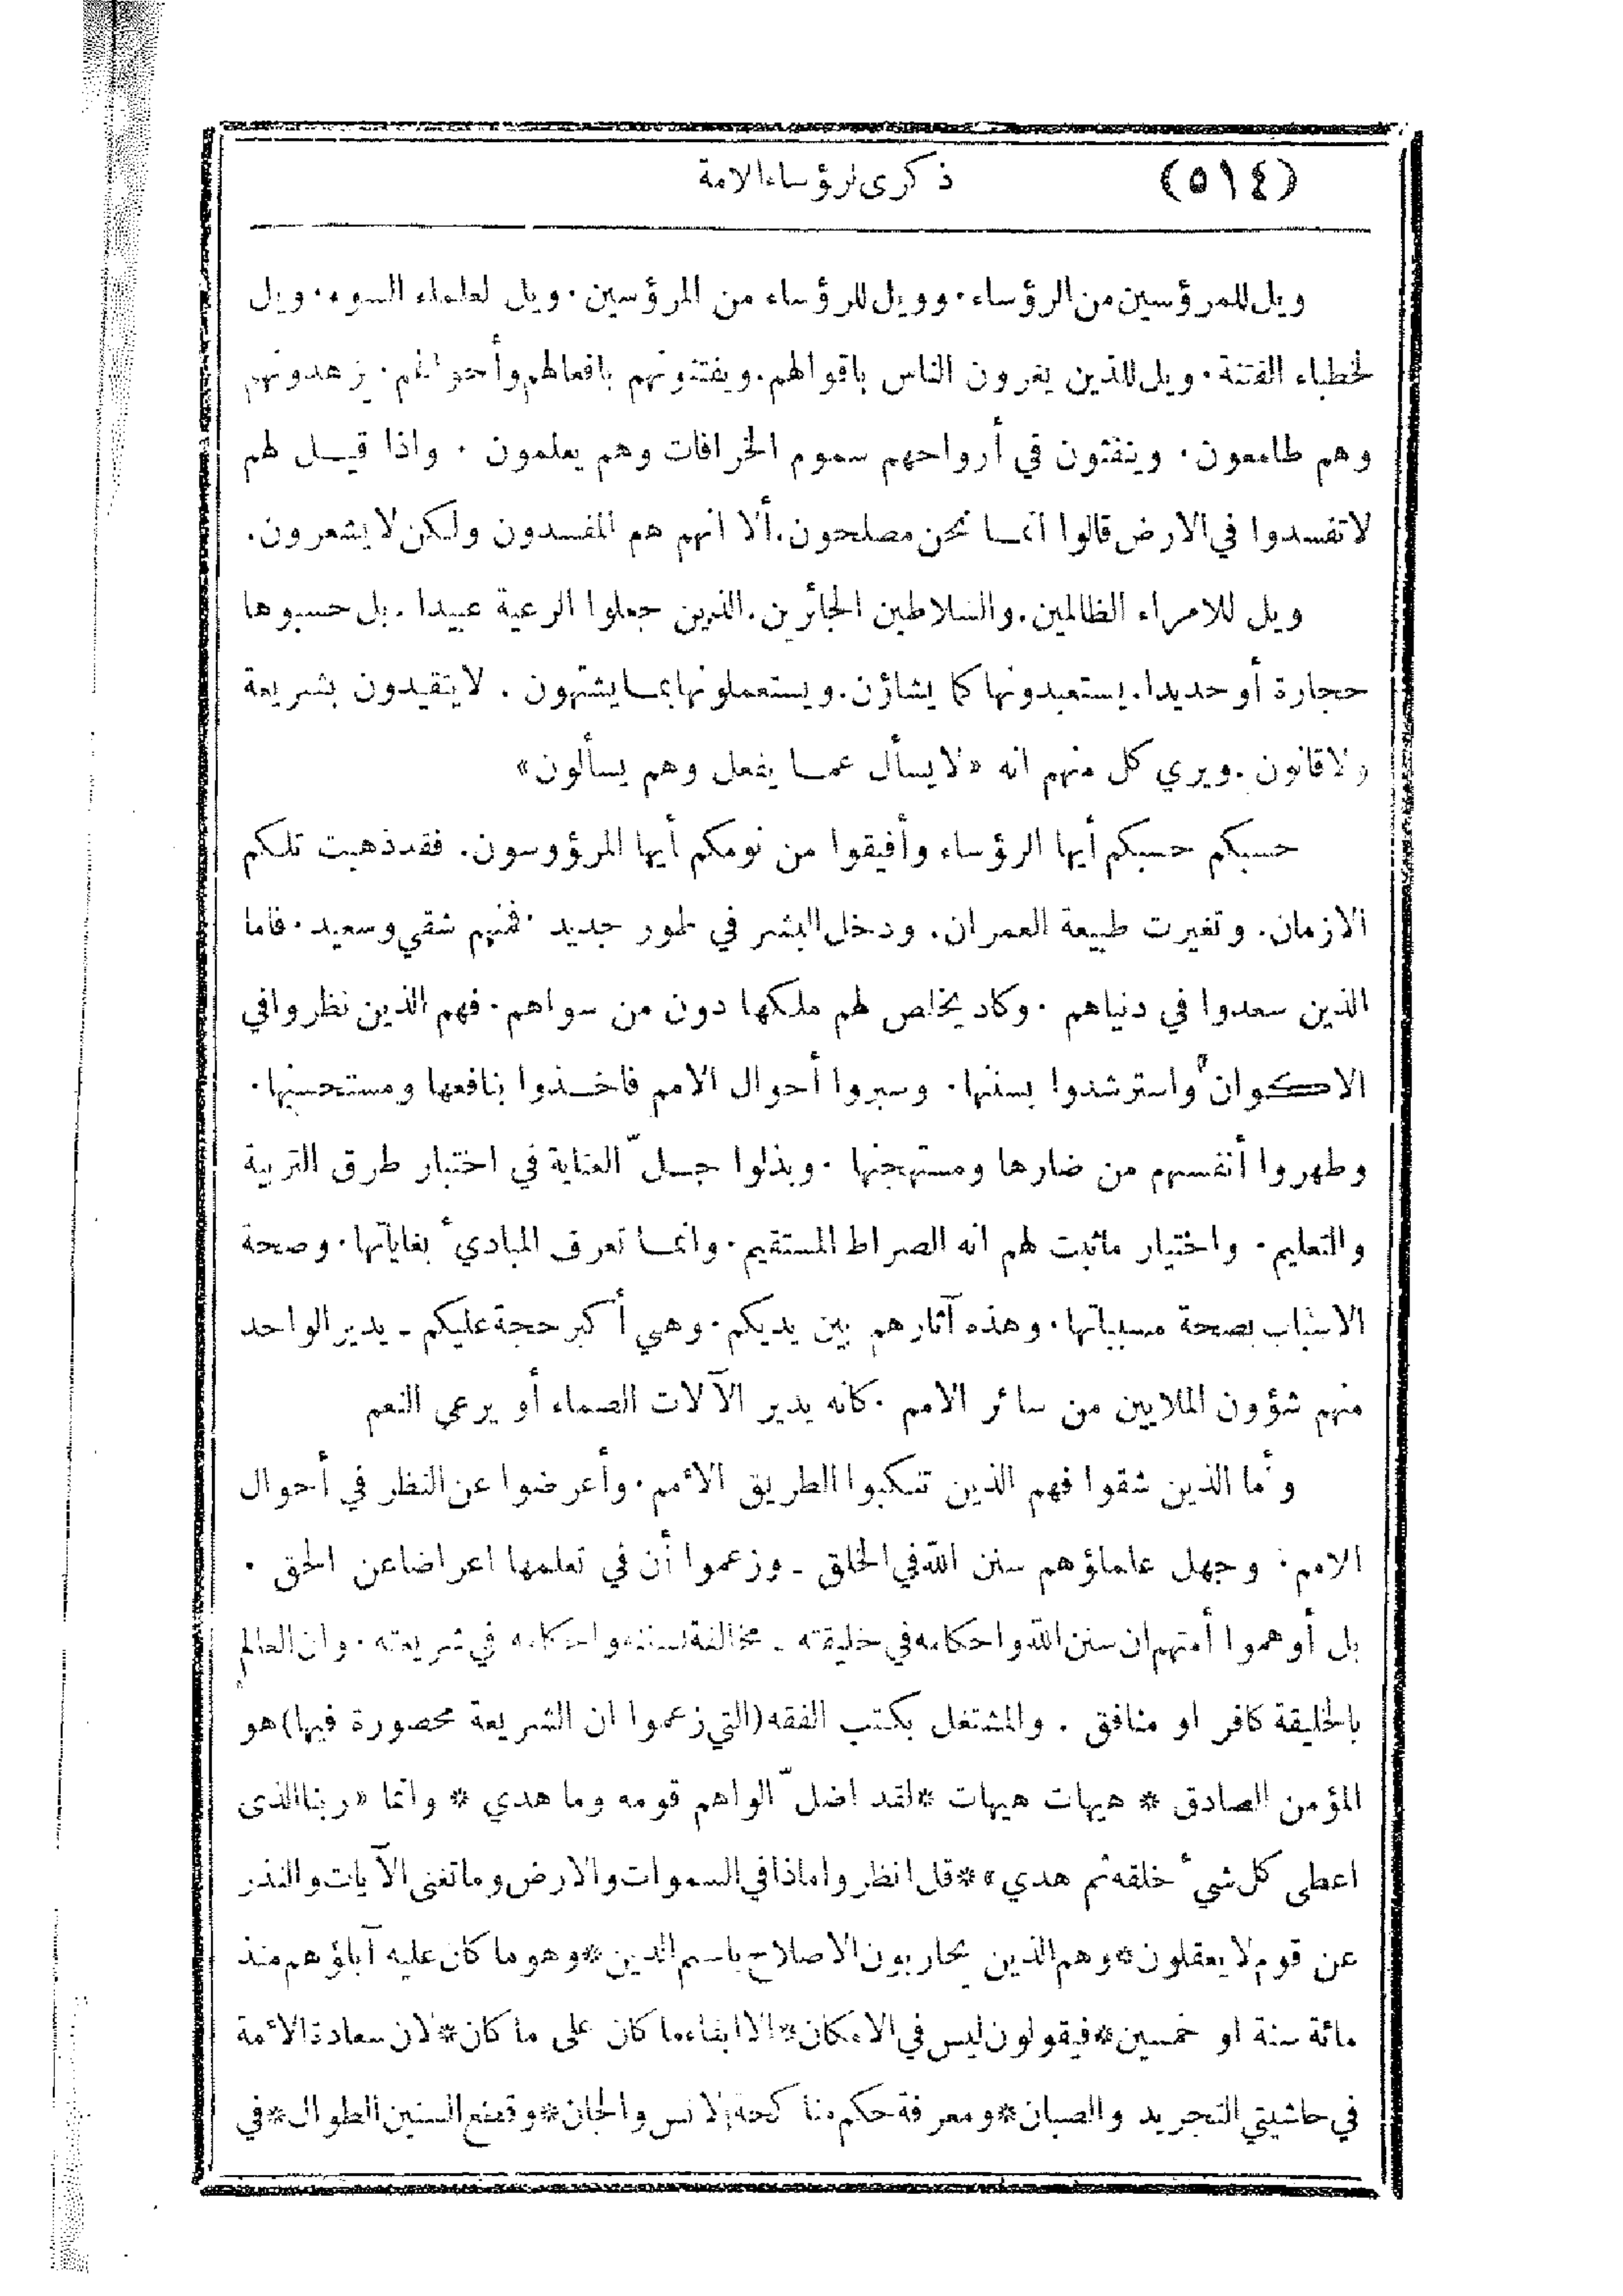 (٥١٤) ذكرى لرؤساء الامة
ويل للمرؤسين من الرؤساء. وويل للرؤساء من المرؤسين. ويل لعلماء السوء. ويل
لخطباء الفتنة. ويل للذين يغرون الناس باقوالهم. ويفتنونهم بافعالهم وأحوالهم. يزهدونهم
وهم طامعون. وينفثون في أرواحهم سموم الخرافات وهم يعلمون. واذا قيل لهم
لا تفسدوا في الارض قالوا انما نحن مصلحون. ألا انهم هم المفسدون ولكن لا يشعرون.
ويل للامراء الظالمين. والسلاطين الجائرين. الذين جعلوا الرعية عبيدا. بل حسبوها
حجارة أو حديدا. يستعبدونها كما يشاؤن. ويستعملونها بما يشتهون. لا يتقيدون بشريعة
ولا قانون. ويري كل منهم انه «لا يسأل عما يفعل وهم يسألون»
حسبكم حسبكم أيها الرؤساء وأفيقوا من نومكم أيها المرؤوسون. فقد ذهبت تلكم
الازمان. وتغيرت طبيعة العمران. ودخل البشر في طور جديد. فمنهم شقي وسعيد. فاما
الذين سعدوا في دنياهم. وكاد يخلص لهم ملكها دون من سواهم. فهم الذين نظروا في
الاكوان واسترشدوا بسننها. وسبروا أحوال الامم فاخذوا بنافعها ومستحسنها.
وطهروا أنفسهم من ضارها ومستهجنها. وبذلوا جلّ العناية في اختبار طرق التربية
والتعليم. واختيار ماثبت لهم انه الصراط المستقيم. وانما تعرف المبادئ بغاياتها. وصحة
الاسباب بصحة مسبباتها. وهذه آثارهم بين يديكم. وهي أكبر حجة عليكم ـ يدير الواحد
منهم شؤون الملايين من سائر الامم. كانه يدير الآلات الصماء أو يرعى النعم
وأما الذين شقوا فهم الذين تنكبوا الطريق الأمم. وأعرضوا عن النظر في أحوال
الامم. وجهل علماؤهم سنن الله في الخلق ـ وزعموا أن في تعلمها اعراضا عن الحق.
بل أوهموا أمتهم ان سنن الله واحكامه في خليقته ـ مخالفة لسننه واحكامه في شريعته. وان العالم
بالخليقة كافر او منافق. والمشتغل بكتب الفقه (التي زعموا ان الشريعة محصورة فيها) هو
المؤمن الصادق * هيهات هيهات * لقد اضلّ الواهم قومه وما هدي * وانما «ربنا الذى
اعطى كل شيء خلقه ثم هدي» * قل انظروا ماذا في السموات والارض وما تغنى الآيات والنذر
عن قوم لا يعقلون * وهم الذين يحاربون الاصلاح باسم الدين * وهو ما كان عليه آباؤهم منذ
مائة سنة او خمسين * فيقولون ليس في الامكان * الا ابقاء ما كان على ما كان * لان سعادة الأمة
في حاشيتي التجريد والصبان * ومعرفة حكم مناكحة الانس والجان * وقطع السنين الطوال * في